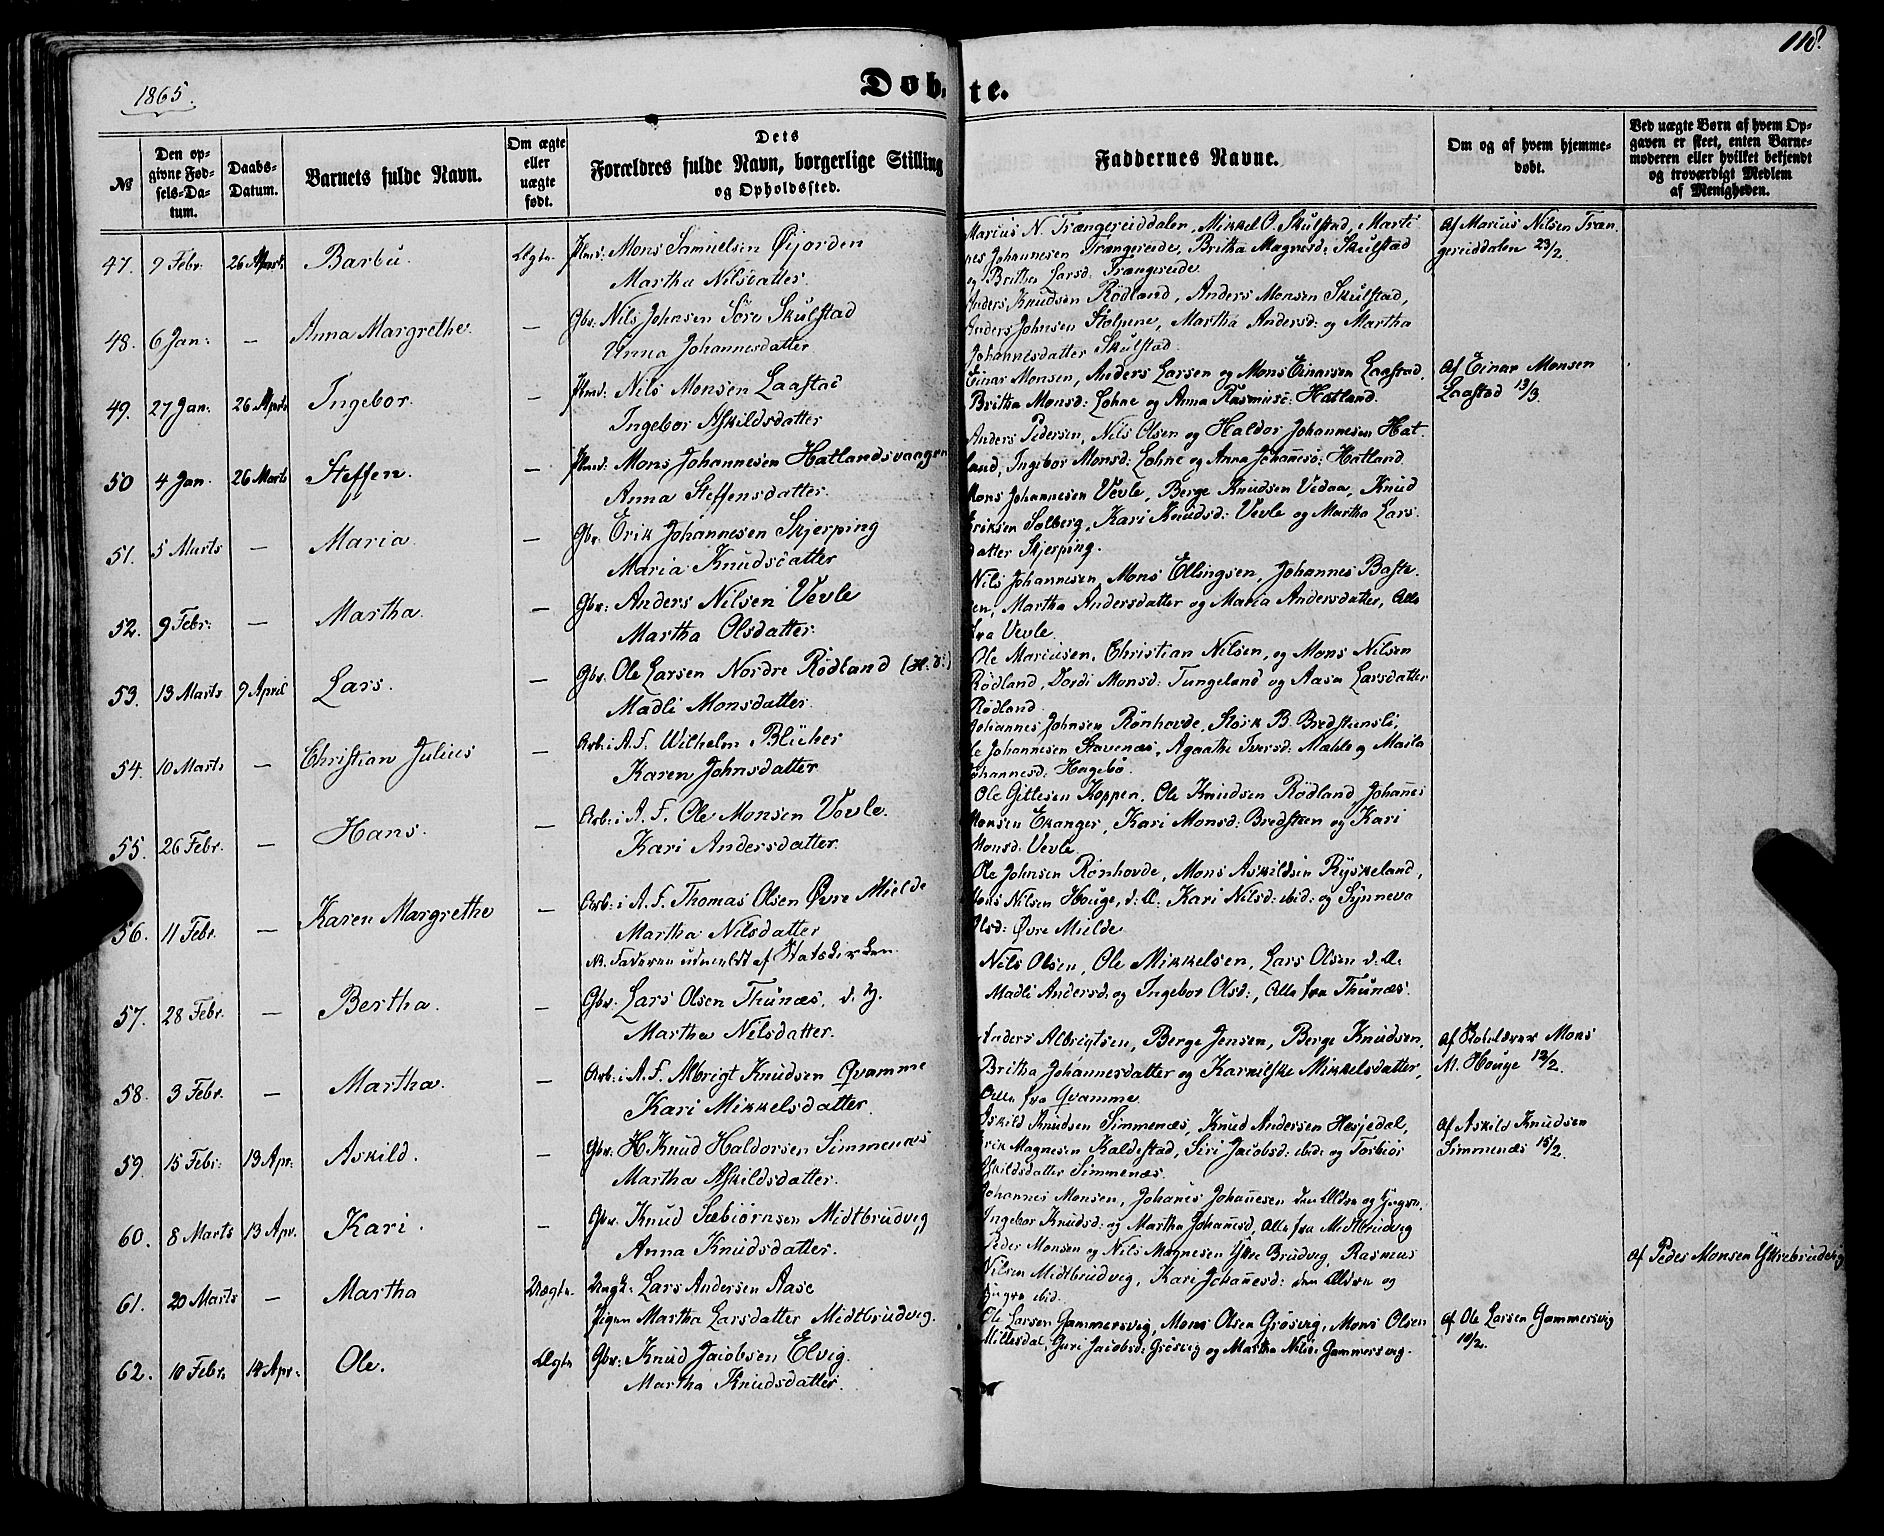 1865.
118.
Døbte.
№
Den opgivne Fødsels-Datum.
Daabs-Datum.
Barnets fulde Navn.
Om ægte eller uægte født.
Dets Forældres fulde Navn, borgerlige Stilling og Opholdssted.
Faddernes Navne.
Om og af hvem hjemmedøbt.
Ved uægte Børn af hvem Opgaven er skeet, enten Barnemoderen eller hvilket bekjendt og troværdigt Medlem af Menigheden.
47. 9 Febr. 26 Marts Barbu. Ægte. Hmd: Mons Samuelsen Øijorden
Martha Nilsdatter.
Marius N. Trængereiddalen, Mikkel O. Skulstad, Marti
nes Johannesen Trængereide, Britha Magnesd: Skulstad
og Britha Larsd: Trængereide
Af Marius Nilsen Træn
gereiddalen 23/2
48. 6 Jan: — Anna Margrethe. — Gbr. Nils Johnsen Søre Skulstad
Anna Johannesdatter
Anders Knudsen Rødland, Anders Monsen Skulstad,
Anders Johnsen Stolpene, Martha Andersd: og Martha
Johannesdatter Skulstad.
49. 27 Jan: 26 Marts Ingebor. — Hmd: Nils Monsen Laastad
Ingebor Askildsdatter
Einar Monsen, Anders Larsen og Mons Einarsen Laastad,
Britha Monsd: Lohne og Anna Rasmusd: Hatland.
Af Einar Monsen
Laastad 13/3.
50 4 Jan. 26 Marts Steffen. — Hmd: Mons Johannesen Hatlandsvaagen
Anna Steffensdatter.
Anders Pedersen, Nils Olsen og Haldor Johannesen Hat
land, Ingebor Monsd: Lohne og Anna Johannesd: Hatland.
51. 5 Marts — Maria. — Gbr. Erik Johannesen Skjerping
Maria Knudsdatter
Mons Johannesen Vevle, Berge Knudsen Vedaa, Knud
Eriksen Solberg, Kari Knudsd: Vevle og Martha Lars
datter Skjerping.
52. 9 Febr: — Martha. — Gbr: Anders Nilsen Vevle
Martha Olsdatter.
Nils Johannesen, Mons Ellingsen, Johannes Baste
sen, Martha Andersdatter og Maria Andersdatter, Alle
fra Vevle.
53. 13 Marts 9 April Lars. — Gbr. Ole Larsen Nordre Rødland (H. d:)
Madli Monsdatter.
Ole Mariusen, Christian Nilsen, og Mons Nilsen
Rødland, Dordi Monsd: Tungeland og Aasa Larsdatter
Rødland
54. 10 Marts — Christian Julius — Arb: i A. F. Wilhelm Blücher
Karen Johnsdatter
Johannes Johnsen Rønhovde, Stork B. Bredstensli,
Ole Johannesen Stavenæs, Agaathe Iversd: Mæhle og Marta
Johannesd: Hagebø.
55. 26 Febr. — Hans. — Arb: i A. F. Ole Monsen Vevle.
Kari Andersdatter.
Ole Gittesen Koppen, Ole Knudsen Rødland, Johanes
Monsen Ekanger, Kari Monsd: Bredsteen og Kari
Monsd: Vevle.
56. 11 Febr. — Karen Margrethe — Arb: i A. F. Thomas Olsen Øvre Mielde
Martha Nilsdatter
NB. Faderen udmeldt af Statskirken.
Ole Johnsen Rønhovde, Mons Askildsen Ryskeland,
Mons Nilsen Houge, d: Æ. Kari Nilsd: ibid: og Synneva
Olsd: Øvre Mielde
57. 28 Febr. — Bertha. — Gbr. Lars Olsen Thunæs, d. y.
Martha Nilsdatter.
Nils Olsen, Ole Mikkelsen, Lars Olsen d: Æ.
Madli Andersd: og Ingebor Olsd:, Alle fra Thunæs.
58. 3 Febr. — Martha. — Arb: i A. F. Albrigt Knudsen Qvamme
Kari Mikkelsdatter.
Anders Albrigtsen, Berge Jensen, Berge Knudsen,
Britha Johannesdatter og Karnilske Mikkelsdatter,
Alle fra Qvamme.
Af Skolelærer Mons
M. Houge 12/2.
59. 15 Febr: 13 Apr: Askild. — Gbr. H Knud Haldorsen Simmenæs
Martha Askildsdatter.
Askild Knudsen Simmenæs, Knud Andersen Hesjedal,
Erik Magnesen Kaldestad, Siri Jacobsd: ibid: og Torbiør
Askildsdatter Simmenæs.
Af Askild Knudsen
Simmenæs 15/2
60. 8 Marts 13 Apr. Kari. — Gbr. Knud Sæbiørnsen Midtbrudvig
Anna Knudsdatter.
Johannes Monsen, Johanes Johannesen den Ældre og Yngre,
Ingebor Knudsd: og Martha Johannesd. Alle fra Midtbrudvig
61. 20 Marts — Martha Uægte. Ungk: Lars Andersen Aase
Pigen Martha Larsdatter Midtbrudvig.
Peder Monsen og Nils Magnesen Ytre Brudvig, Rasmus
Nilsen Midtbrudvig, Kari Johannesd: den Ældre og
Yngre ibid.
Af Peder Monsen Ytrebrudvig
62. 10 Febr. 14 Apr. Ole. Ægte Gbr: Knud Jacobsen Elvig.
Martha Knudsdatter.
Ole Larsen Gammersvig, Mons Olsen Grøsvig, Mons Olsen
Millesdal, Guri Jacobsd: Grøsvig og Martha Nilsd: Gammersvig.
Af Ole Larsen Gammersvig
10/2.